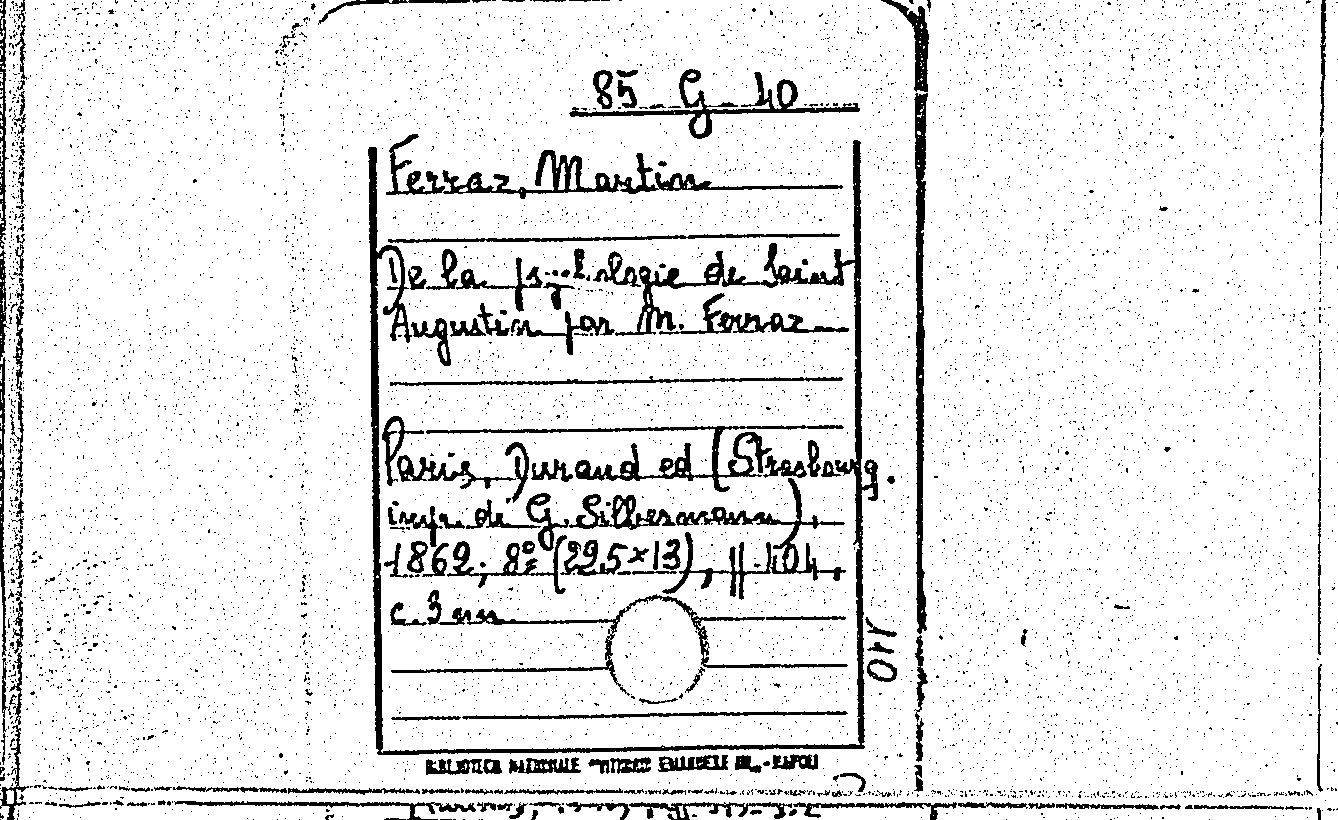 85 G 40
Ferraz, Martin
De la psychologie de Saint
Augustin par M. Ferraz
Paris, Durand ed (Strasbourg.
impr. di G. Silbermann),
1862; 8º (22,5×13), pp. 404,
c. 3 nn.
140
BIBLIOTECA NAZIONALE "VITTORIO EMANUELE III" - NAPOLI